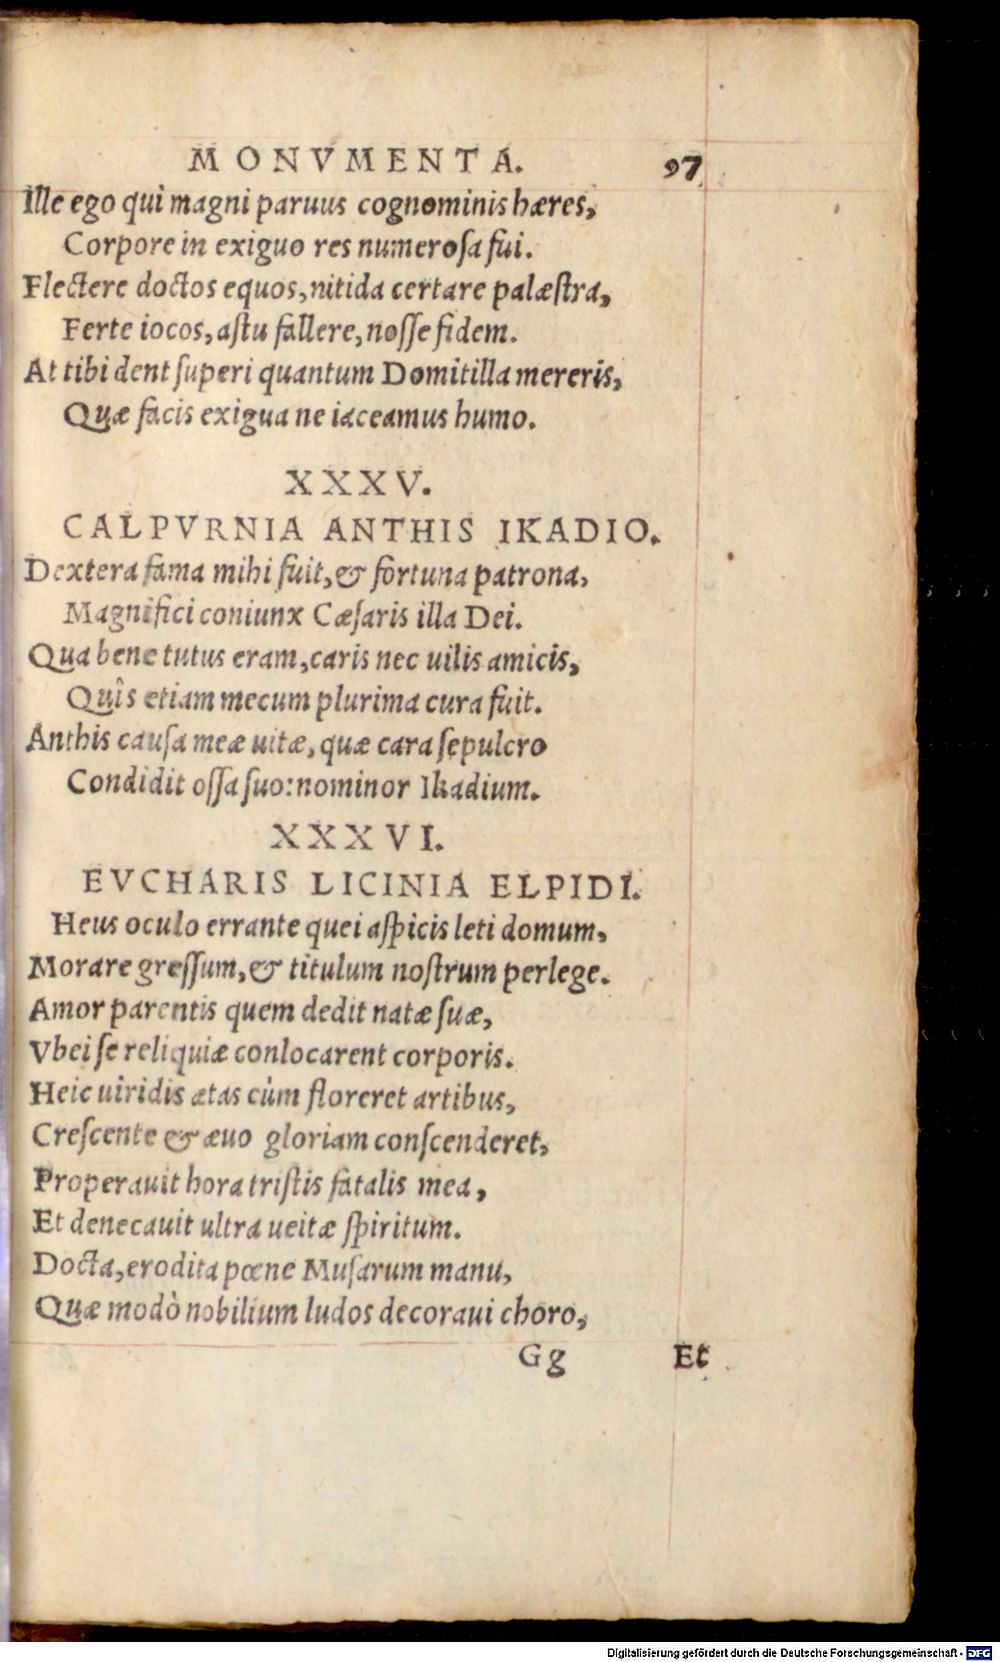 MONVMENTA. 97
Ille ego qui magni paruus cognominis hæres,
Corpore in exiguo res numerosa fui.
Flectere doctos equos, nitida certare palæstra,
Ferte iocos, astu fallere, nosse fidem.
At tibi dent superi quantum Domitilla mereris,
Quæ facis exigua ne iaceamus humo.
XXXV.
CALPVRNIA ANTHIS IKADIO.
Dextera fama mihi fuit, & fortuna patrona,
Magnifici coniunx Cæsaris illa Dei.
Qua bene tutus eram, caris nec uilis amicis,
Quîs etiam mecum plurima cura fuit.
Anthis causa meæ uitæ, quæ cara sepulcro
Condidit ossa suo: nominor Ikadium.
XXXVI.
EVCHARIS LICINIA ELPIDI.
Heus oculo errante quei aspicis leti domum,
Morare gressum, & titulum nostrum perlege.
Amor parentis quem dedit natæ suæ,
Vbei se reliquiæ conlocarent corporis.
Heic uiridis ætas cùm floreret artibus,
Crescente & æuo gloriam conscenderet,
Properauit hora tristis fatalis mea,
Et denecauit ultra ueitæ spiritum.
Docta, erodita pœne Musarum manu,
Quæ modò nobilium ludos decoraui choro,
Gg Et
Digitalisierung gefördert durch die Deutsche Forschungsgemeinschaft - DFG